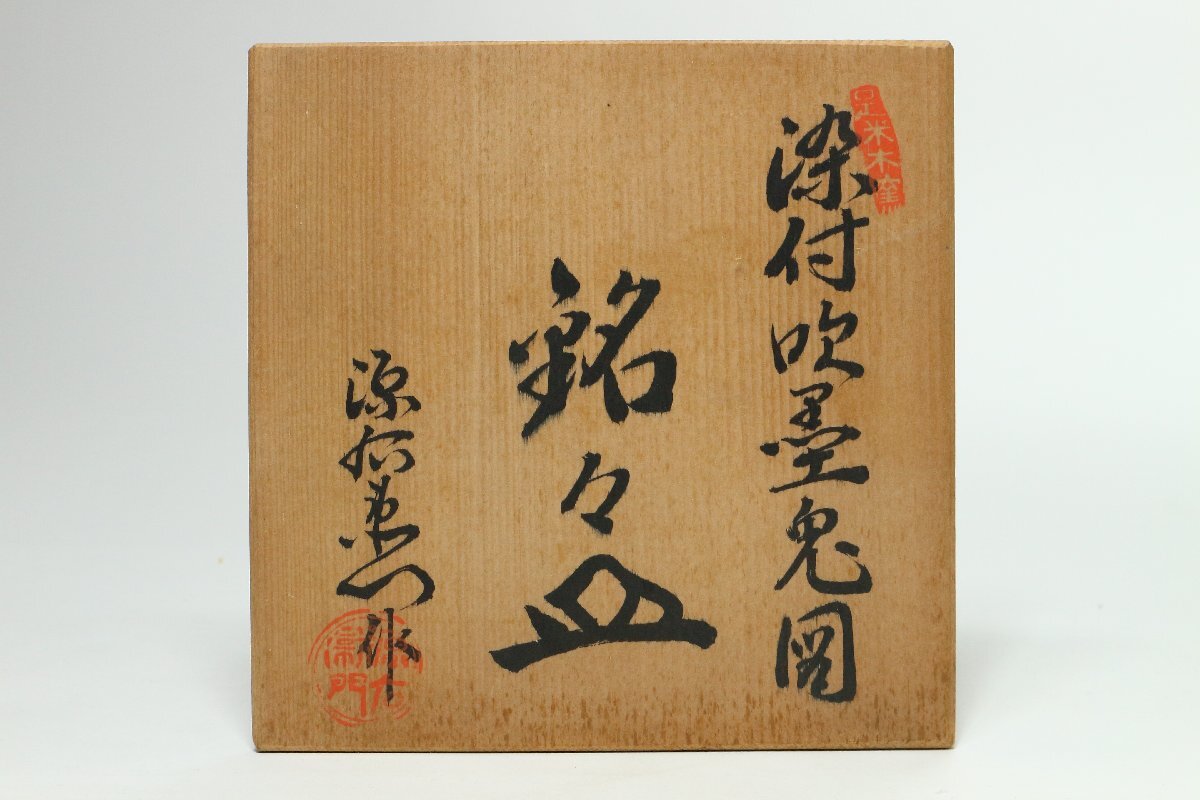 是米木窯
染付吹墨兎図
銘々皿
源右衛門作
源右衛門